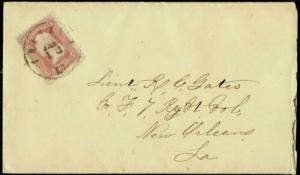 Lieut. R. C. Gates
Co F. 7 Regt Vol.
New Orleans
La